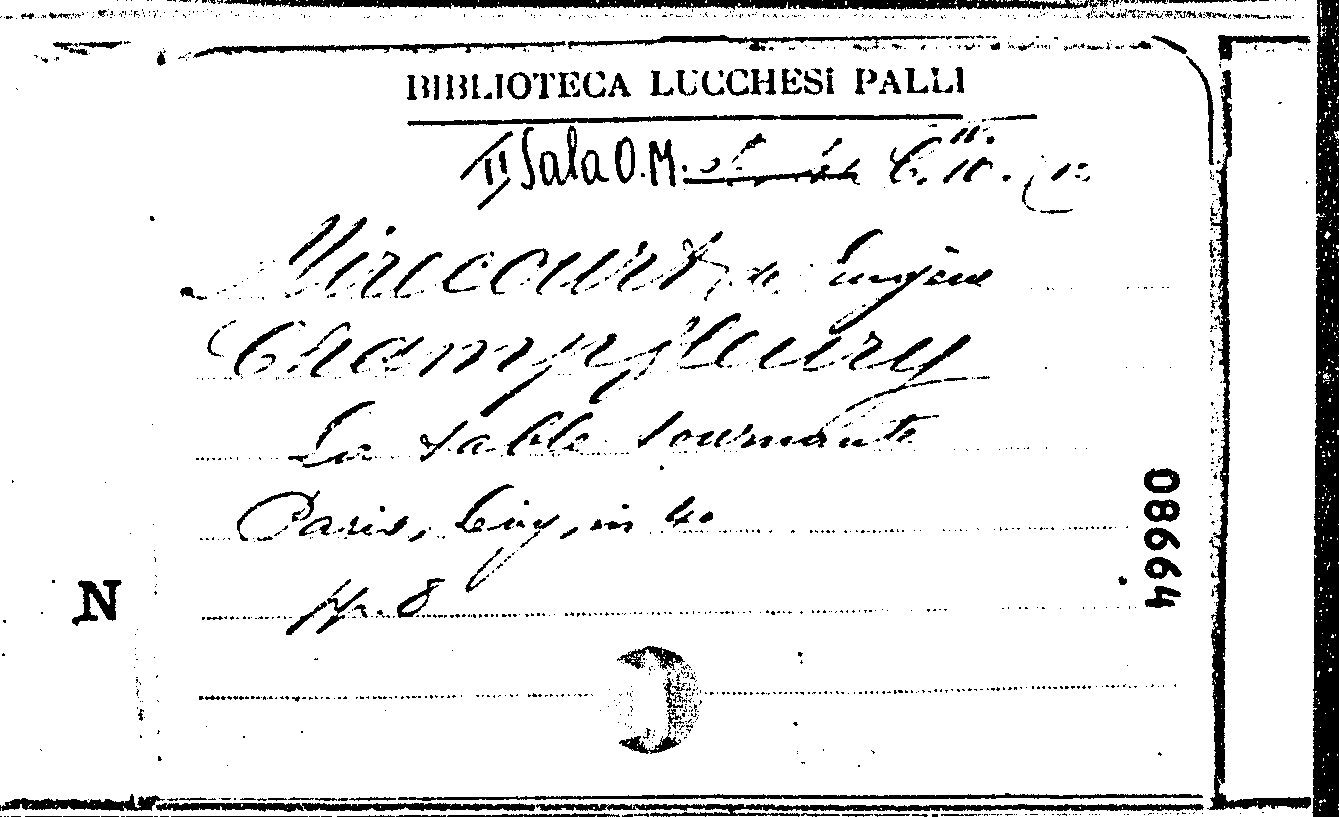 BIBLIOTECA LUCCHESI PALLI
II Sala O.M. C. 10. (12
Mirecourt, de Eugène
Champfleury
La table tournante
Paris, Lévy, in 4o
pp. 8
N
08664